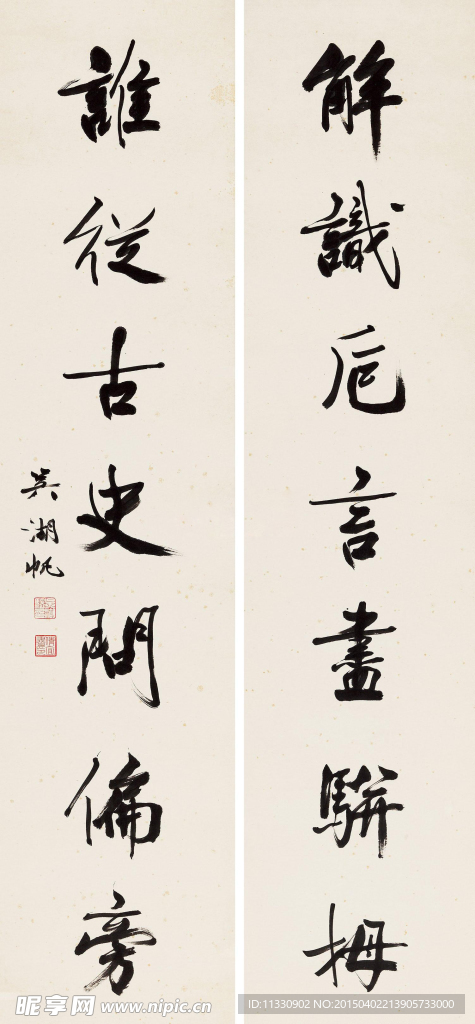 解識卮言盡駢拇
誰從古史問偏旁
吳湖帆
昵享网 www.nipic.cn
ID:11330902 NO:20150402213905733000